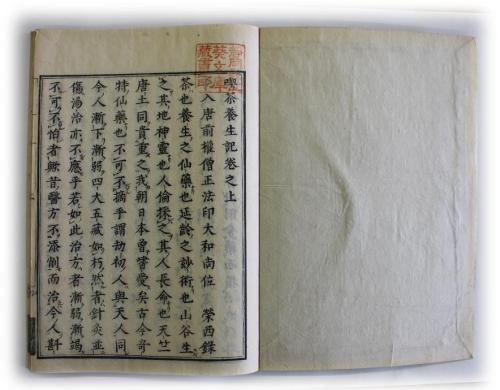 靜岡
葵文庫
藏書印
喫茶養生記卷之上
入唐前權僧正法印大和尚位 榮西錄
茶也養生之仙藥也延齡之妙術也山谷生
之其地神靈也人倫採之其人長命也天竺
唐土同貴重之我朝日本曾嘗愛矣古今奇
特仙藥也不可不摘乎謂劫初人與天人同
今人漸下漸弱四大五藏如朽然者針灸並
傷湯治亦不應乎若如此治方者漸弱漸竭
不可不怕者歟昔醫方不添削而治今人斟